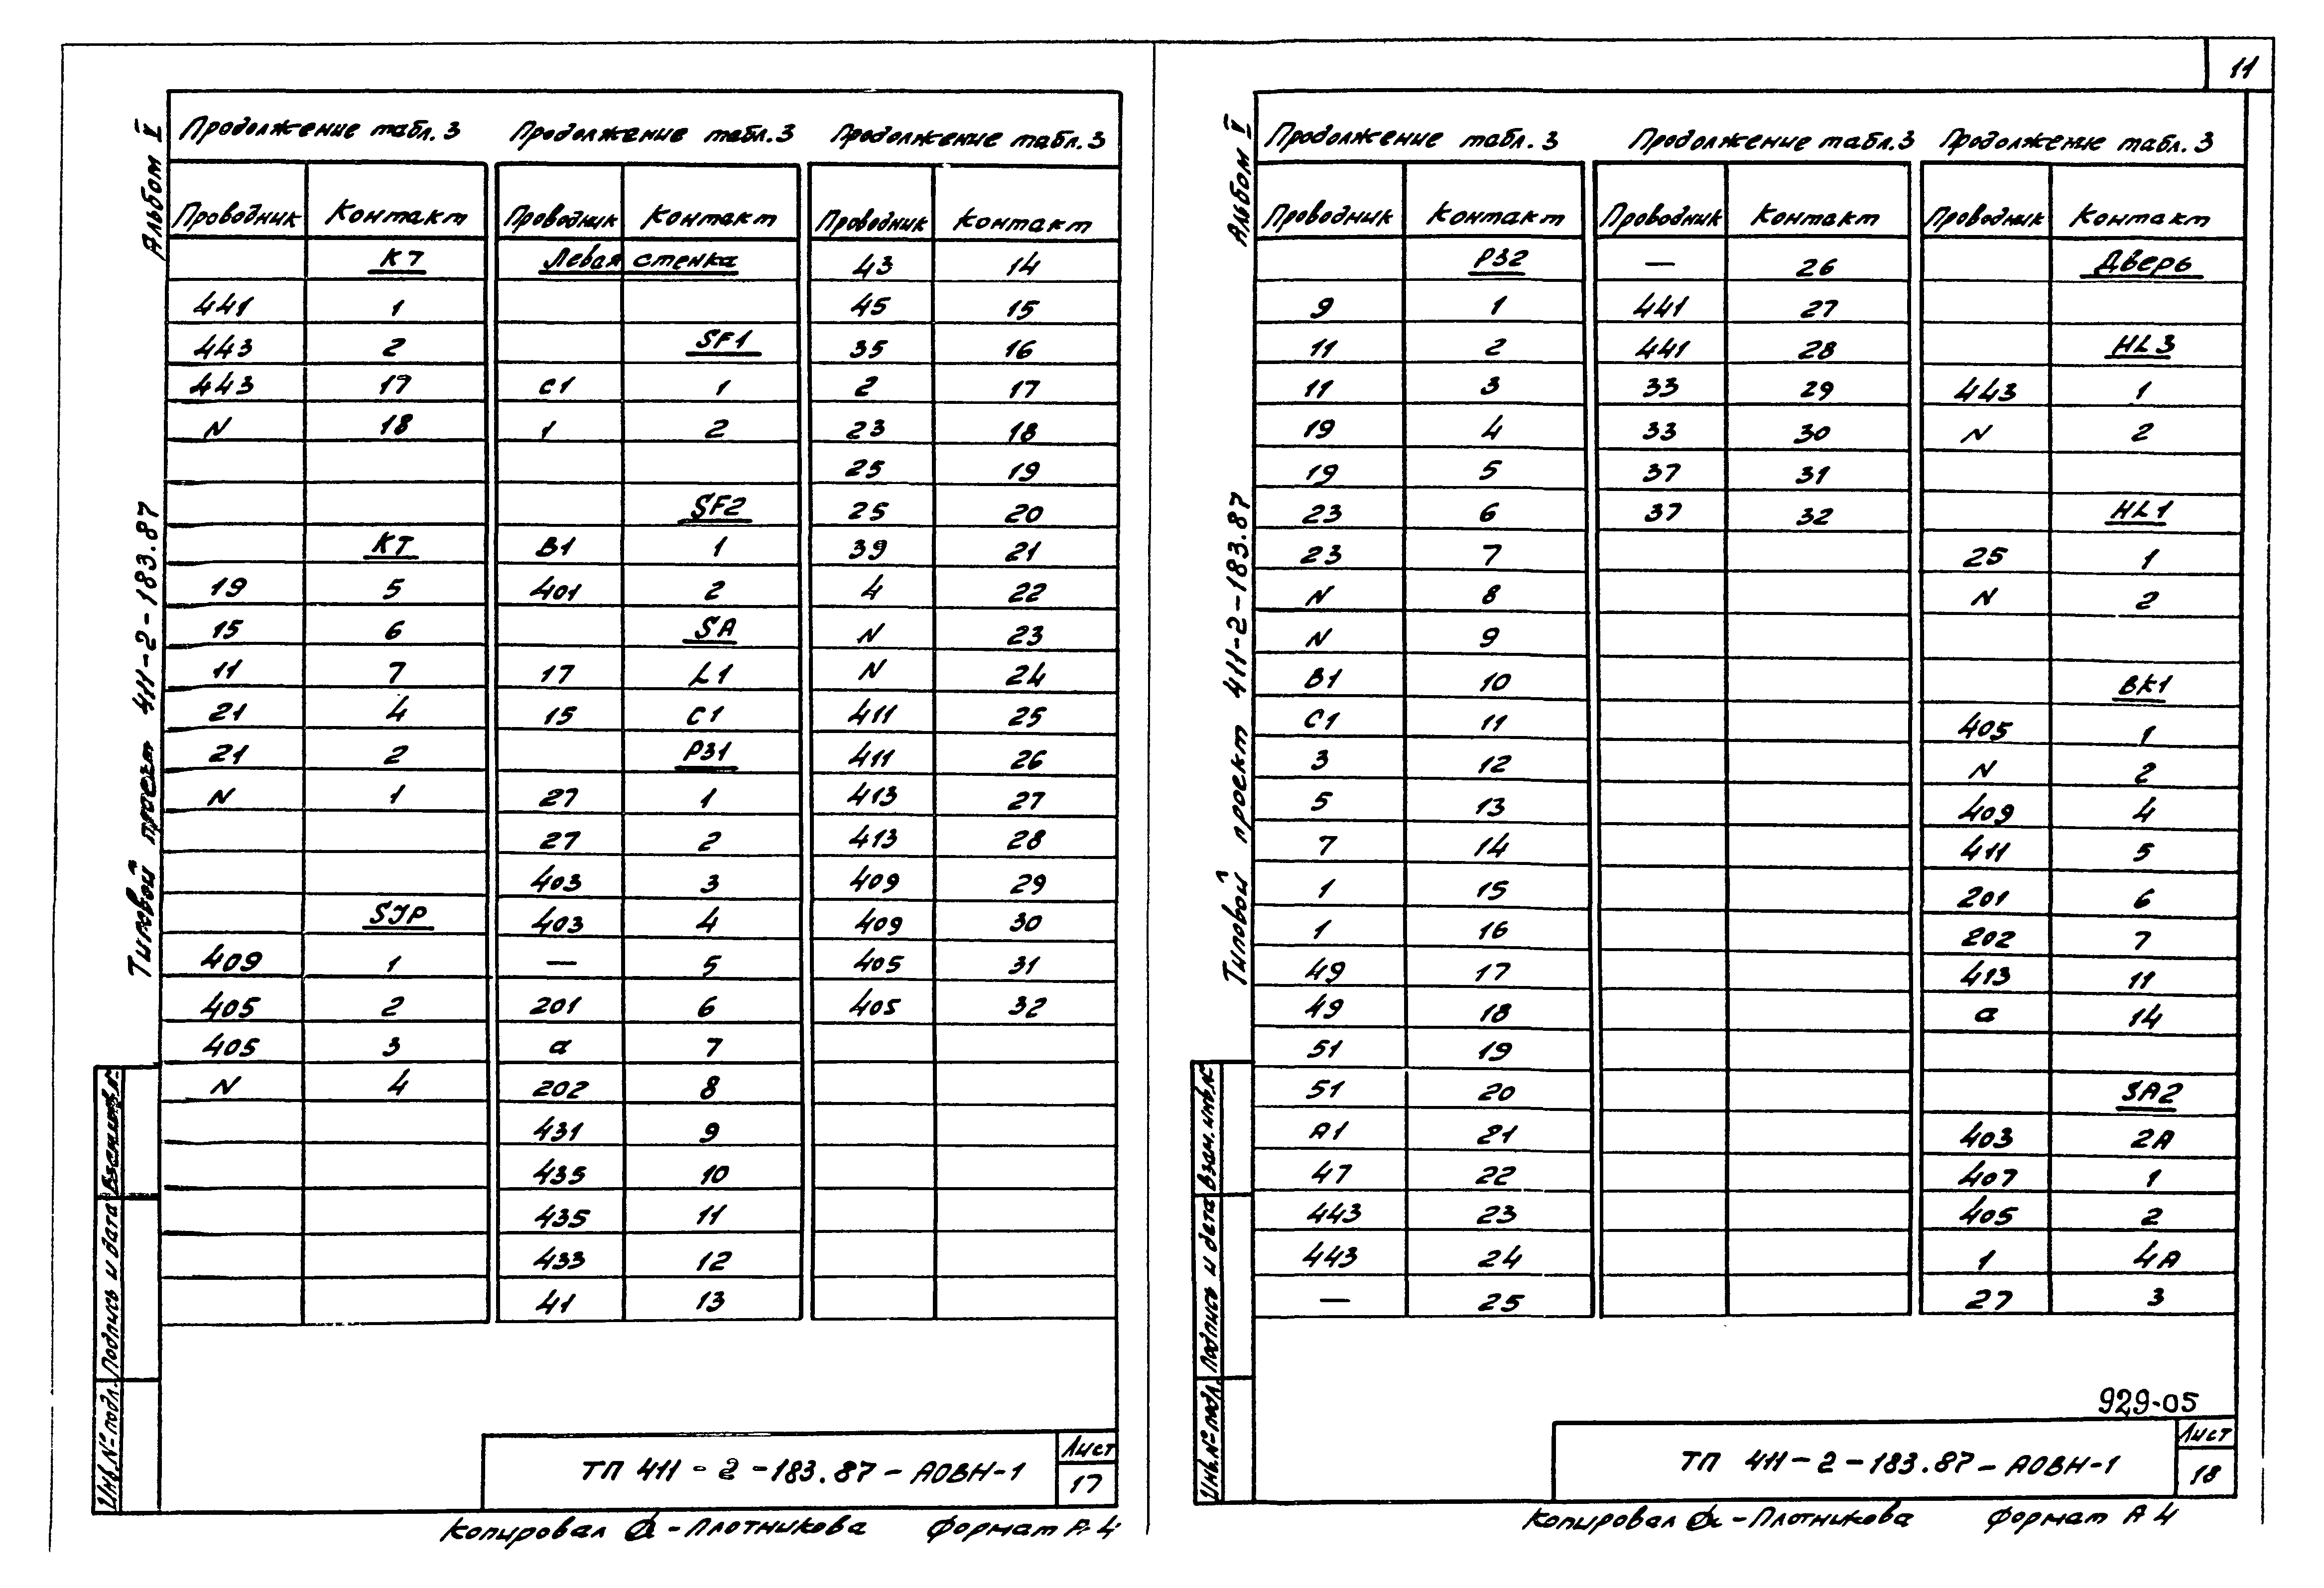 11
Альбом V
Типовой проект 411-2-183.87
Продолжение табл. 3
Проводник Контакт
К7
441 1
443 2
443 17
N 18
КТ
19 5
15 6
11 7
21 4
21 2
N 1
SJP
409 1
405 2
405 3
N 4
Продолжение табл. 3
Проводник Контакт
Левая стенка
SF1
С1 1
1 2
SF2
В1 1
401 2
SA
17 L1
15 С1
РЗ1
27 1
27 2
403 3
403 4
— 5
201 6
а 7
202 8
431 9
435 10
435 11
433 12
41 13
Продолжение табл. 3
Проводник Контакт
43 14
45 15
35 16
2 17
23 18
25 19
25 20
39 21
4 22
N 23
N 24
411 25
411 26
413 27
413 28
409 29
409 30
405 31
405 32
Инв. № подл. Подпись и дата Взам.инв.№
ТП 411-2-183.87-АОВН-1
Лист
17
Копировал -Плотникова Формат А4
Альбом V
Типовой проект 411-2-183.87
Продолжение табл. 3
Проводник Контакт
РЗ2
9 1
11 2
11 3
19 4
19 5
23 6
23 7
N 8
N 9
В1 10
С1 11
3 12
5 13
7 14
1 15
1 16
49 17
49 18
51 19
51 20
А1 21
47 22
443 23
443 24
— 25
Продолжение табл. 3
Проводник Контакт
— 26
441 27
441 28
33 29
33 30
37 31
37 32
Продолжение табл. 3
Проводник Контакт
Дверь
HL3
443 1
N 2
HL1
25 1
N 2
ВК1
405 1
N 2
409 4
411 5
201 6
202 7
413 11
а 14
SA2
403 2А
407 1
405 2
1 4А
27 3
Инв. № подл. Подпись и дата Взам.инв.№
929-05
ТП 411-2-183.87-АОВН-1
Лист
18
Копировал -Плотникова Формат А4